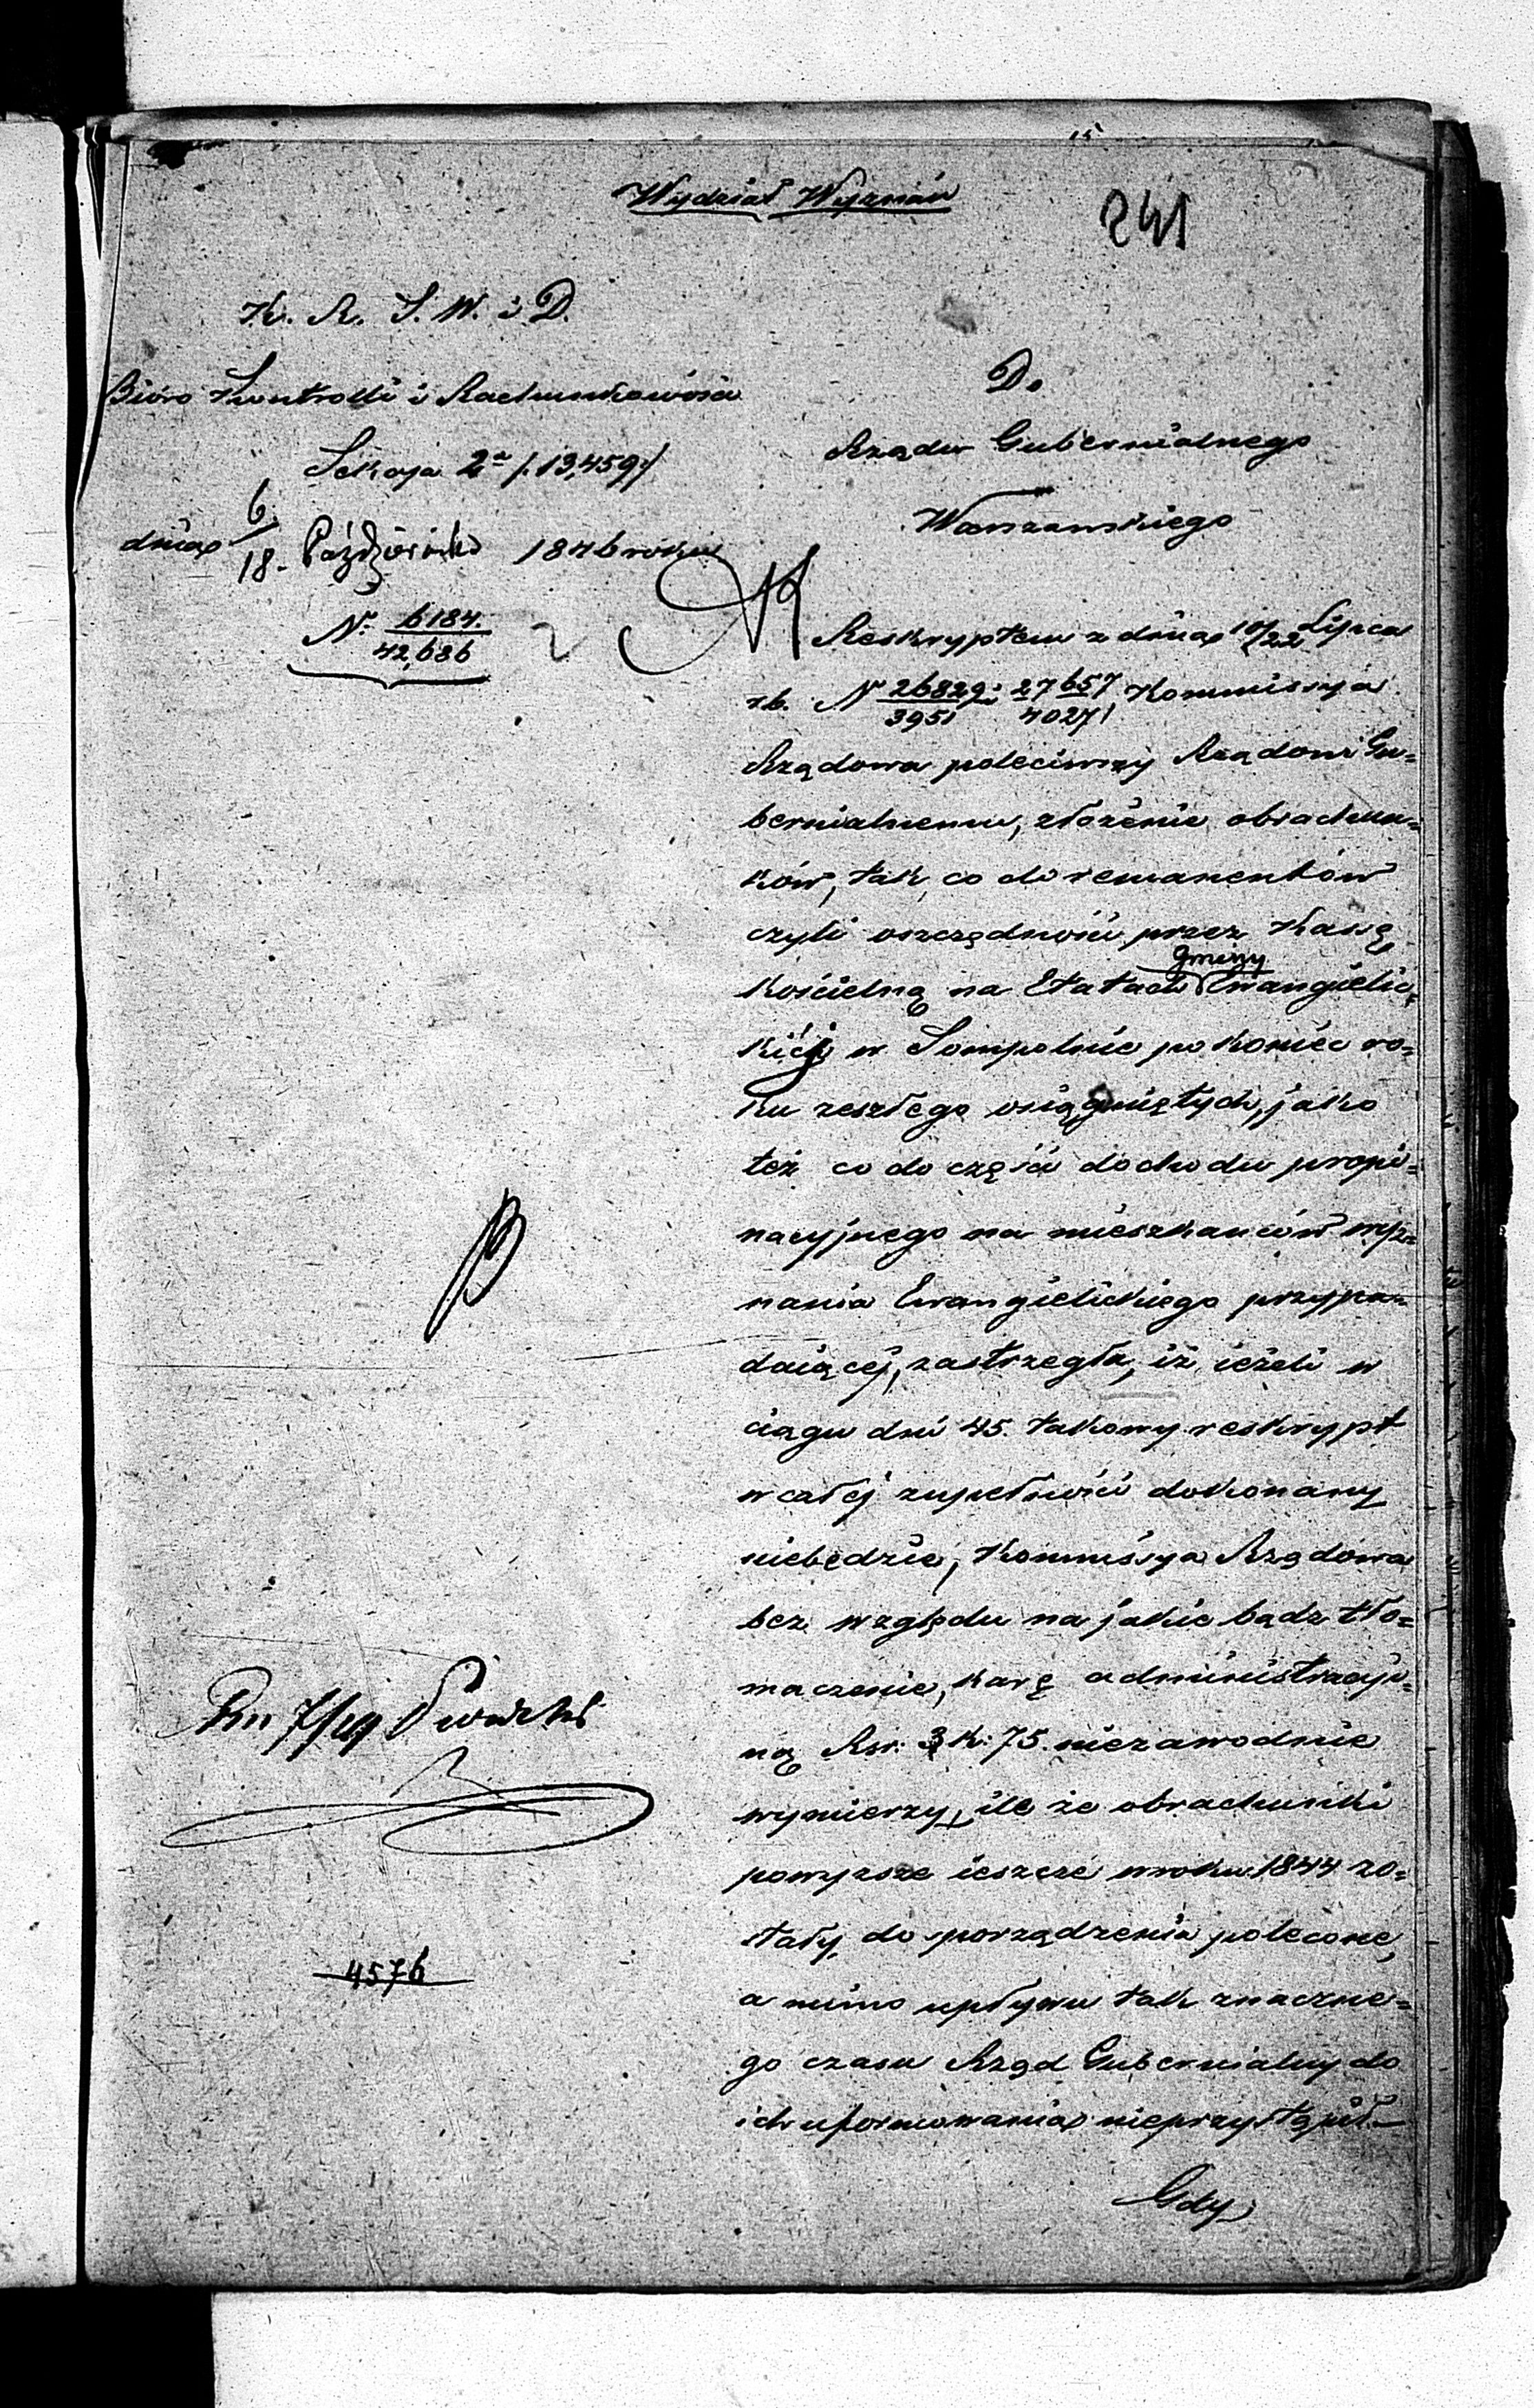 15
Wydział Wyznań
241
K. R. S. W. i D.
Bióro Kontrolli i Rachunkowości
Sekcja 2a /: 13,459 :/
dnia 6/18. Października 1846 roku
No. 6184./42,686
Do
Rządu Gubernialnego
Warszawskiego
Reskryptem z dnia 10/22 Lipca
r.b. No 26829/3951 i 27657/40271 Kommissya
Rządowa poleciwszy Rządowi Gu=
bernialnemu, złożenie obrachun=
ków, tak co do remanentów
czyli oszczędności przez Kassę
gminy
Kościelną na Etatach Ewangelic=
kiéj w Sompolnie po koniec ro=
ku zeszłego osiągniętych, jako
też co do części dochodu propi=
nacyjnego na mieszkańców wyz=
nania Ewangielickiego przypa=
daiącéj, zastrzegła, iż ieżeli w
ciągu dni 45. takowy reskrypt
w całéj zupełności dokonany
niebędzie, Kommissya Rządowa
bez względu na jakie bądź tło=
maczenie, karę administracyj=
ną Rsr. 3 k: 75. niezawodnie
wymierzy, ile że obrachunki
powyższe ieszcze w roku 1844 zo=
stały do sporządzenia polecone,
a mimo upływu tak znaczne=
go czasu Rząd Gubernialny do
ich uformowania nieprzystąpił.—
Gdy
4576